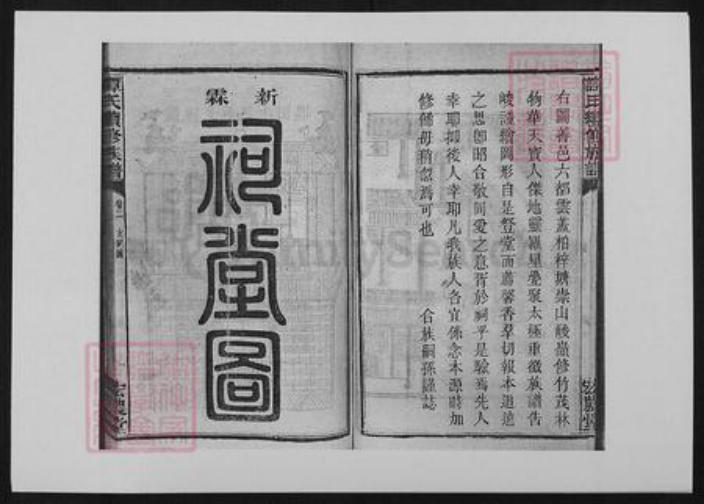 右圖善邑六都雲蓋柏梓塘崇山峻嶺修竹茂林
物華天寶人傑地靈羅星疊聚太極重徵族譜告
竣謹繪圖形自是登堂而薦馨香羣切報本追遠
之思卽昭合敬同愛之意胥於祠乎是驗焉先人
幸耶抑後人幸耶凡我族人各宜係念本源時加
修葺毋稍忽焉可也
合族嗣孫謹誌
新霖
祠堂圖
氏續修族譜
卷二